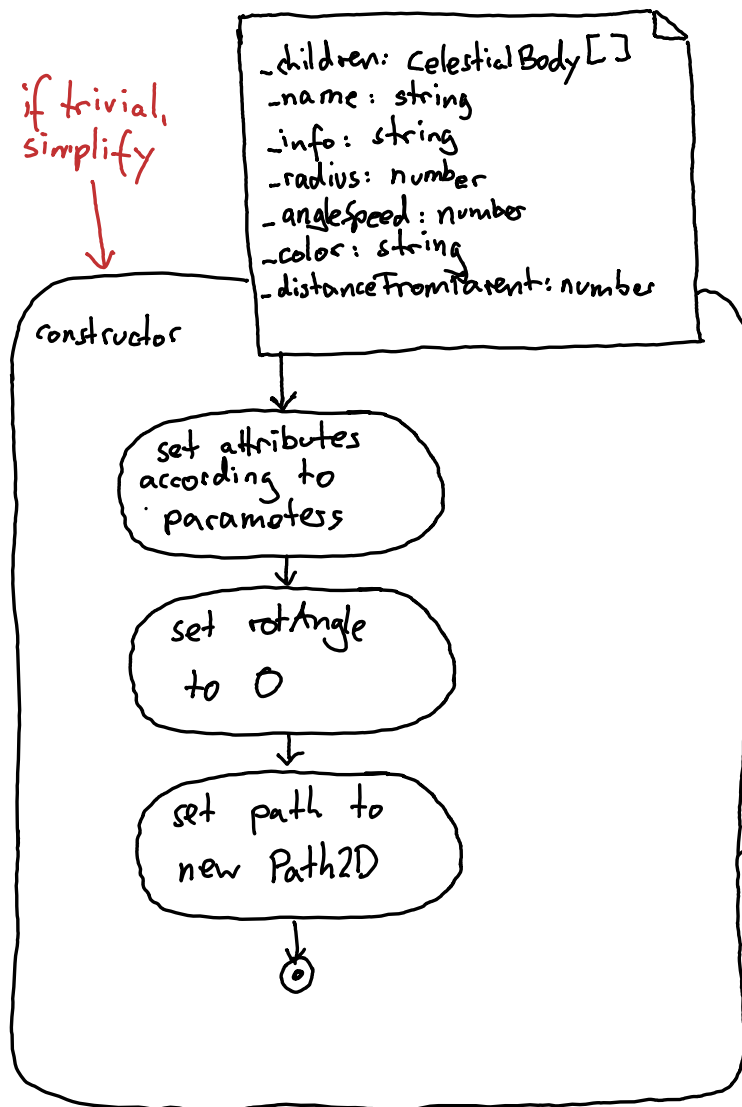 _children: CelestialBody []
_name: string
_info: string
_radius: number
_angleSpeed: number
_color: string
_distanceFromParent: number
if trivial,
simplify
constructor
set attributes
according to
parameters
set rotAngle
to 0
set path to
new Path2D